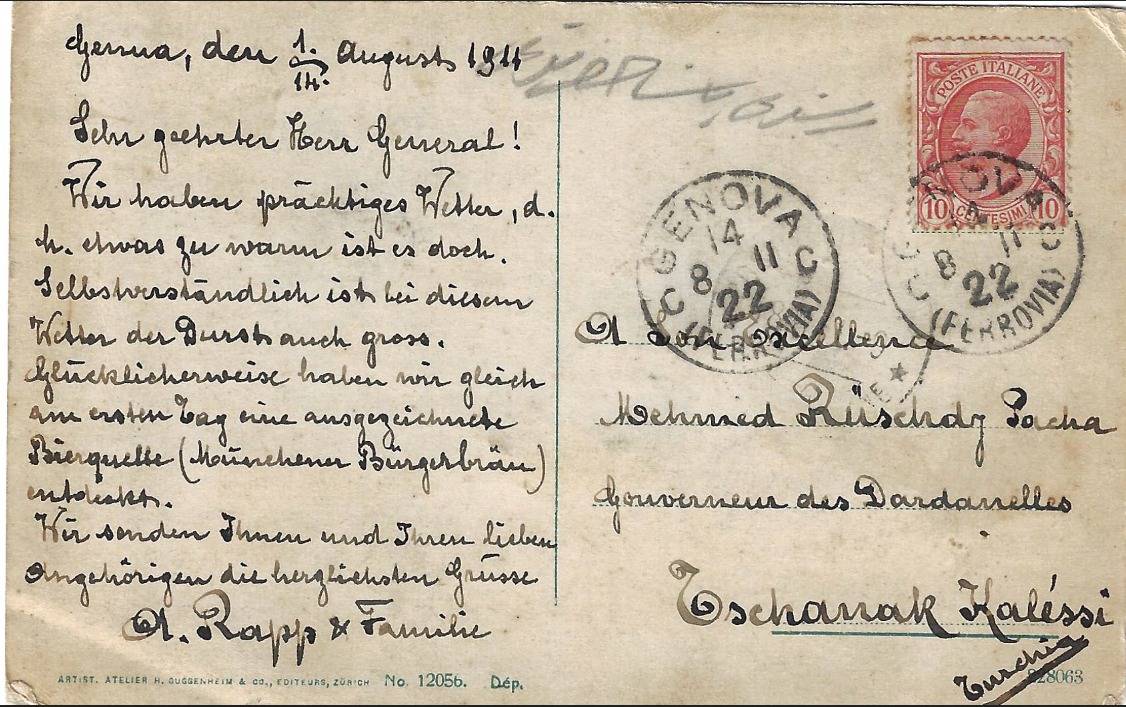 Genua, den 1./14. August 1911
Sehr geehrter Herr General!
Wir haben prächtiges Wetter, d.
h. etwas zu warm ist es doch.
Selbstverständlich ist bei diesem
Wetter der Durst auch gross.
Glücklicherweise haben wir gleich
am ersten Tag eine ausgezeichnete
Bierquelle (Münchener Bürgerbräu)
entdeckt.
Wir senden Ihnen und Ihren lieben
Angehörigen die herzlichsten Grüsse
A. Rapp & Familie
ARTIST. ATELIER H. GUGGENHEIM & CO., EDITEURS, ZÜRICH No. 12056. Dép.
POSTE ITALIANE
10 CENTESIMI 10
GENOVA C C
14
8 11
22
(FERROVIA)
8 11
22
(FERROVIA)
A Son Excellence
Mehmed Rüschdy Pacha
Gouverneur des Dardanelles
Tschanak Kaléssi
Turchia
28063